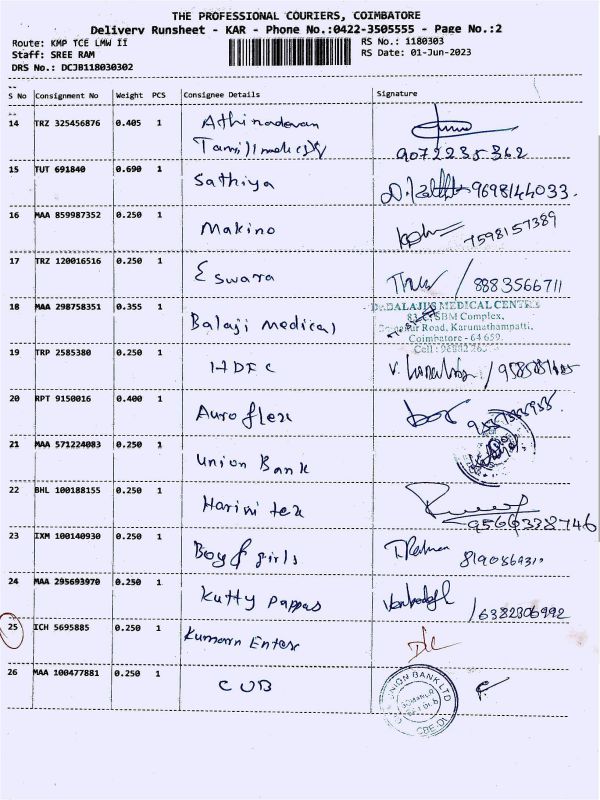 THE PROFESSIONAL COURIERS, COIMBATORE
Delivery Runsheet - KAR - Phone No.:0422-3505555 - Page No.:2
Route: KMP TCE LMW II
RS No.: 1180303
Staff: SREE RAM
RS Date: 01-Jun-2023
DRS No.: DCJB118030302
S No Consignment No Weight PCS Consignee Details Signature
14 TRZ 325456876 0.405 1 Athinadavan
9072235362
15 TUT 691840 0.690 1 Sathiya 9698144033.
16 MAA 859987352 0.250 1 Makino 7598157389
17 TRZ 120016516 0.250 1 Eswara / 8883566711
18 MAA 298758351 0.355 1 Balaji Medical
Dr.BALAJI'S MEDICAL CENTRE
SBM Complex,
Road, Karumathampatti,
Coimbatore - 64 659.
Cell :
19 TRP 2585380 0.250 1 HDFC
20 RPT 9150016 0.400 1 Auroflex
21 MAA 571224083 0.250 1 Union Bank
22 BHL 100188155 0.250 1 Harini tex
9566338746
23 IXM 100140930 0.250 1 Boy & girls
24 MAA 295693970 0.250 1 Kutty Pappas /6382306992
25 ICH 5695885 0.250 1 Kumaran Enter
26 MAA 100477881 0.250 1 CUB
UNION BANK LTD
SOMANUR
CBE-DT